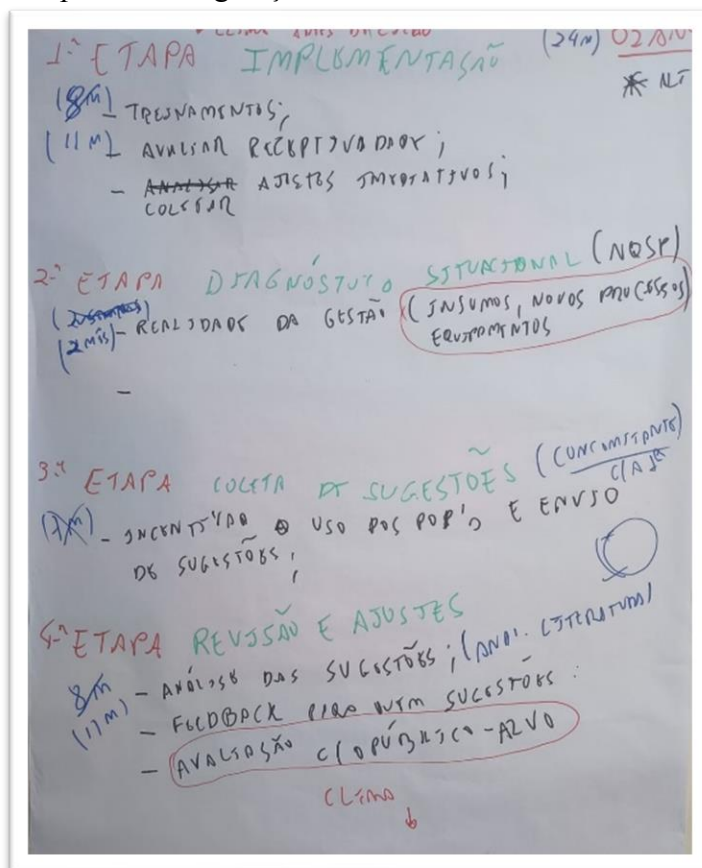 (24M) 02 AN
1.ª ETAPA IMPLEMENTAÇÃO
(8M) - TREINAMENTOS;
(11M) - AVALIAR RECEPTIVIDADE;
- ANALISAR AJUSTES IMEDIATIVOS;
COLETAR
2.ª ETAPA DIAGNÓSTICO SITUACIONAL (NQSP)
(2 MÊS) - REALIDADE DA GESTÃO (INSUMOS, NOVOS PROCESSOS)
EQUIPAMENTOS
-
3.ª ETAPA COLETA DE SUGESTÕES (CONCOMITANTE)
C/A 1ª
(7M) - INCENTIVAR O USO DOS POP'S E ENVIO
DE SUGESTÕES;
4.ª ETAPA REVISÃO E AJUSTES
8M - ANÁLISE DAS SUGESTÕES; (ANÁ. LITERATURA)
(11M) - FEEDBACK PARA SUGESTÕES:
- AVALIAÇÃO C/O PÚBLICO-ALVO
CLIMA